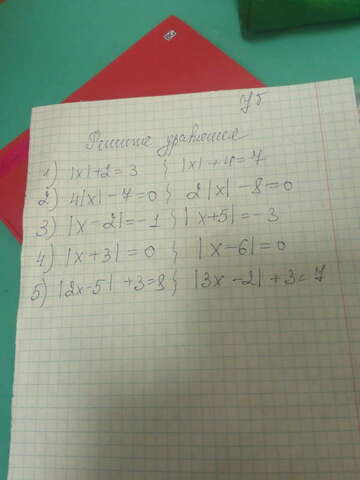 У5
Решите уравнения
1) |x|+2=3 ; |x|+4=7
2) 4|x|-7=0 ; 2|x|-8=0
3) |x-2|=-1 ; |x+5|=-3
4) |x+3|=0 ; |x-6|=0
5) |2x-5|+3=8 ; |3x-2|+3=7